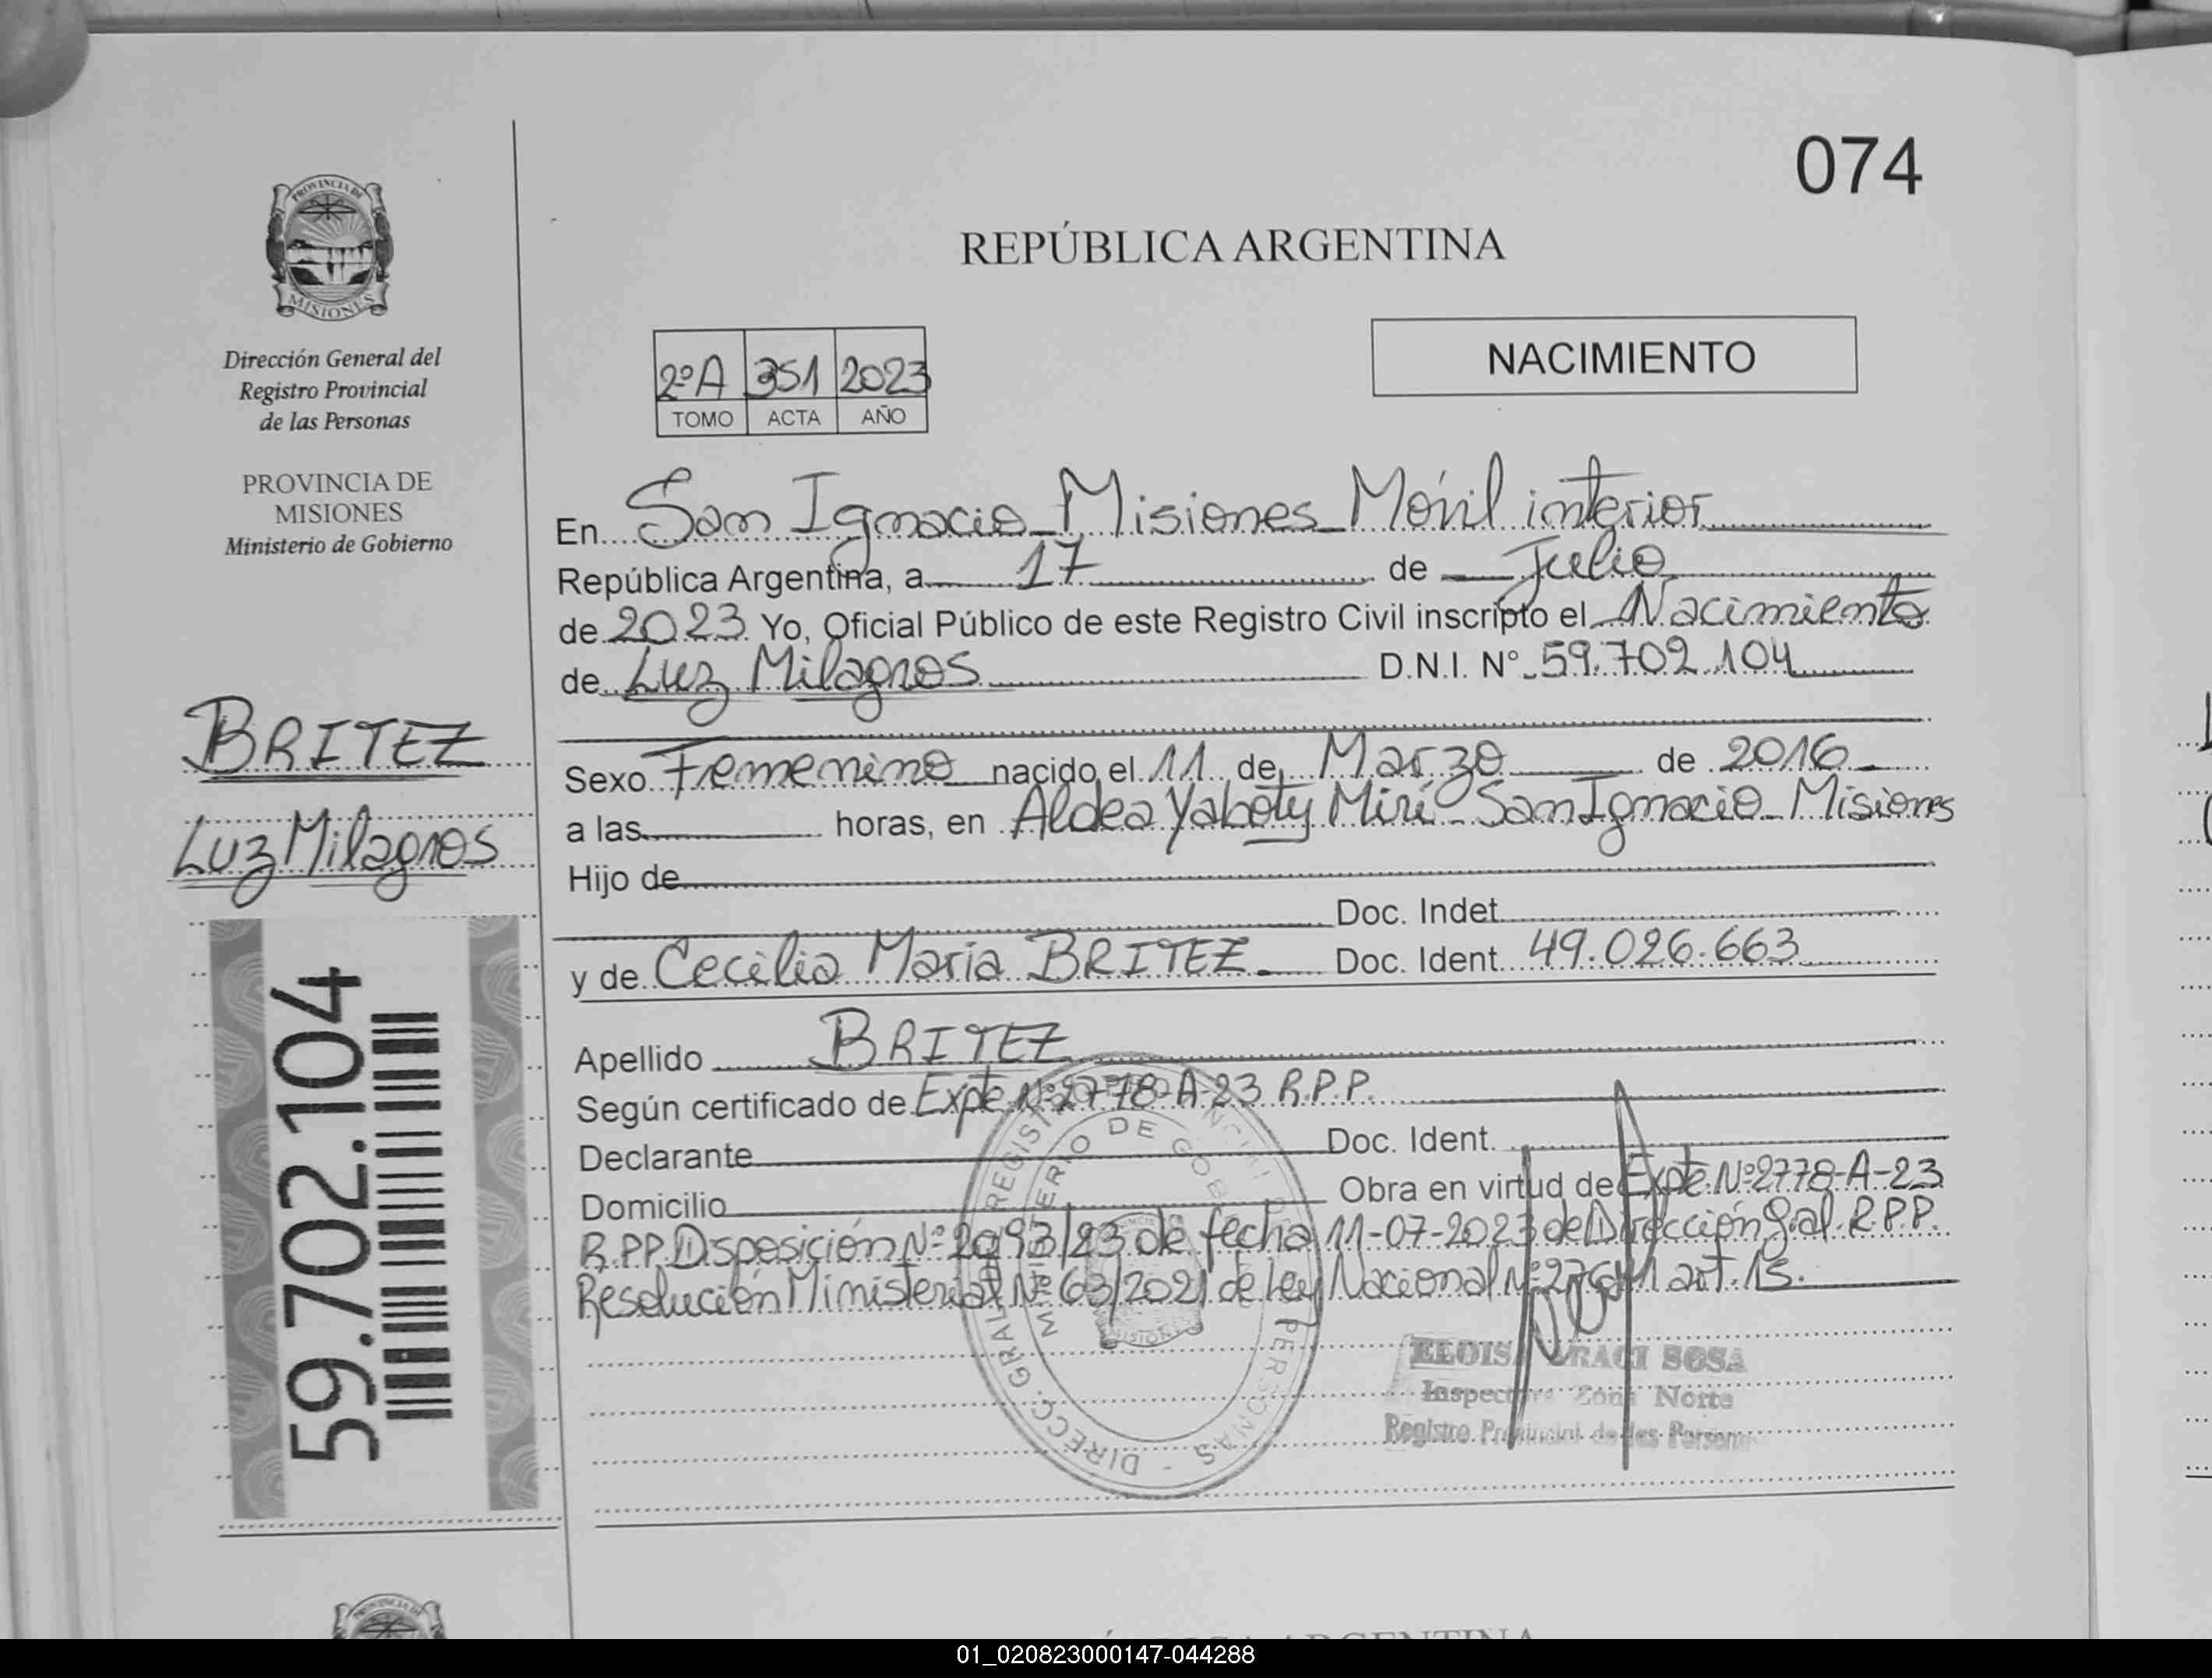 074
PROVINCIA DE
MISIONES
Dirección General del
Registro Provincial
de las Personas
PROVINCIA DE
MISIONES
Ministerio de Gobierno
BRITEZ
Luz Milagros
59.702.104
REPÚBLICA ARGENTINA
2ºA 351 2023
TOMO ACTA AÑO
NACIMIENTO
En San Ignacio - Misiones - Móvil interior
República Argentina, a 17 de Julio
de 2023 Yo, Oficial Público de este Registro Civil inscripto el Nacimiento
de Luz Milagros D.N.I. N° 59.702.104
Sexo Femenino nacido el 11 de Marzo de 2016
a las horas, en Aldea Yaboty Mirí - San Ignacio - Misiones
Hijo de
Doc. Indet.
y de Cecilia Maria BRITEZ Doc. Ident. 49.026.663
Apellido BRITEZ
Según certificado de Expte Nº 2778-A-23 R.P.P.
Declarante Doc. Ident.
Domicilio Obra en virtud de Expte Nº 2778-A-23
R.P.P. Disposición Nº /23 de fecha 11-07-2023 de Dirección Gral. R.P.P.
Resolución Ministerial Nº 63/2021 de Ley Nacional Nº art. 15.
DIRECC. GRAL. REGIST PERSONAS
MINISTERIO DE GOB
MISIONES
SOSA
Inspectora Zona Norte
Registro Provincial de las Personas
ARGENTINA
01_020823000147-044288